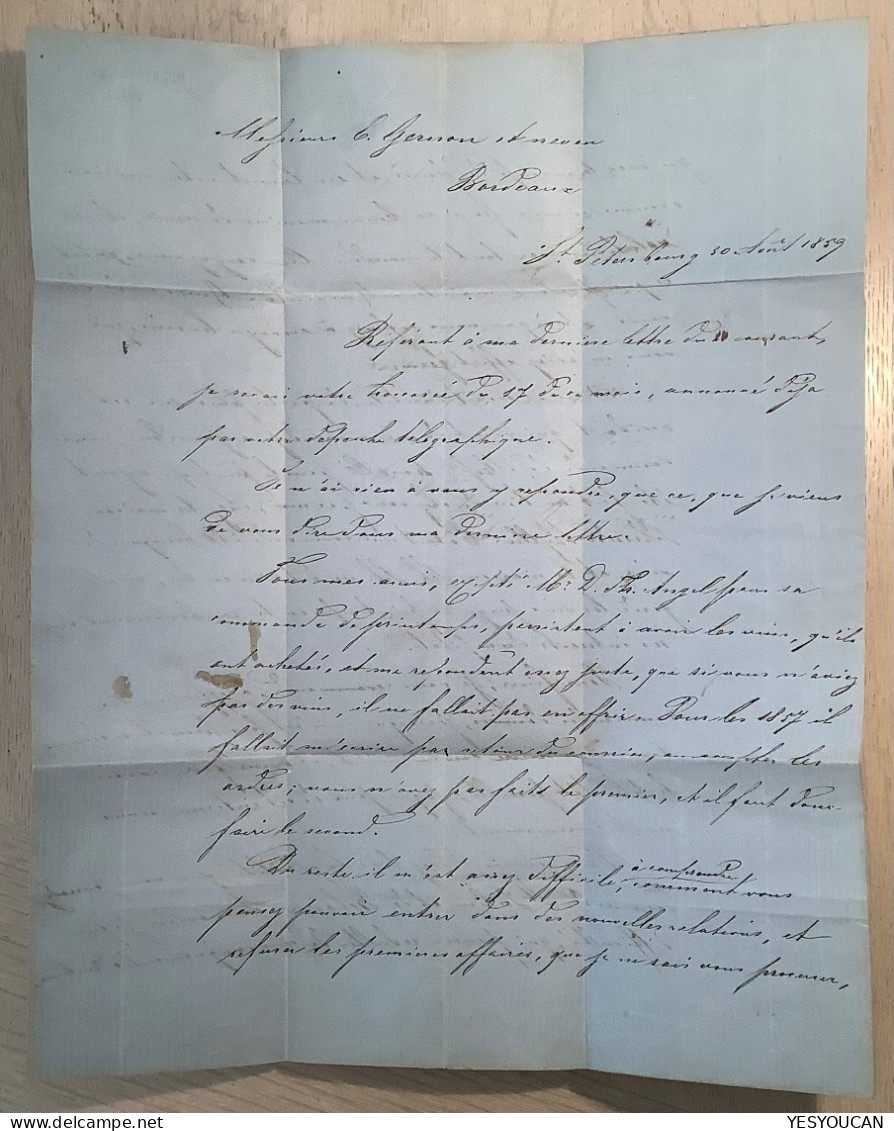 Messieurs C. Gerson et neveu
Bordeaux
St. Petersbourg 30 Août 1859
Référant à ma derniere lettre du courant,
je votre du 17 de ce mois, annoncé deja
par votre depeche télégraphique.
Je n'ai rien à vous y repondre, que ce, que je viens
de vous dire dans ma derniere lettre.
Tous mes amis, excepté Mr. D. Th. Angel pour sa
commande de printemps, persistent à avoir les vins, qu'ils
ont achetés, et me repondent assez juste, que si vous n'aviez
pas des vins, il ne fallait pas en offrir. Pour les 1857 il
fallait m'ecrire par retour du courrier, ou accepter les
ordres; vous n'avez pas faits le premier, et il faut donc
faire le second.
Du reste il m'est assez difficile, à comprendre comment vous
pensez pouvoir entrer dans des nouvelles relations, et
refuser les premieres affaires, que je ne sais vous procurer,
YESYOUCAN